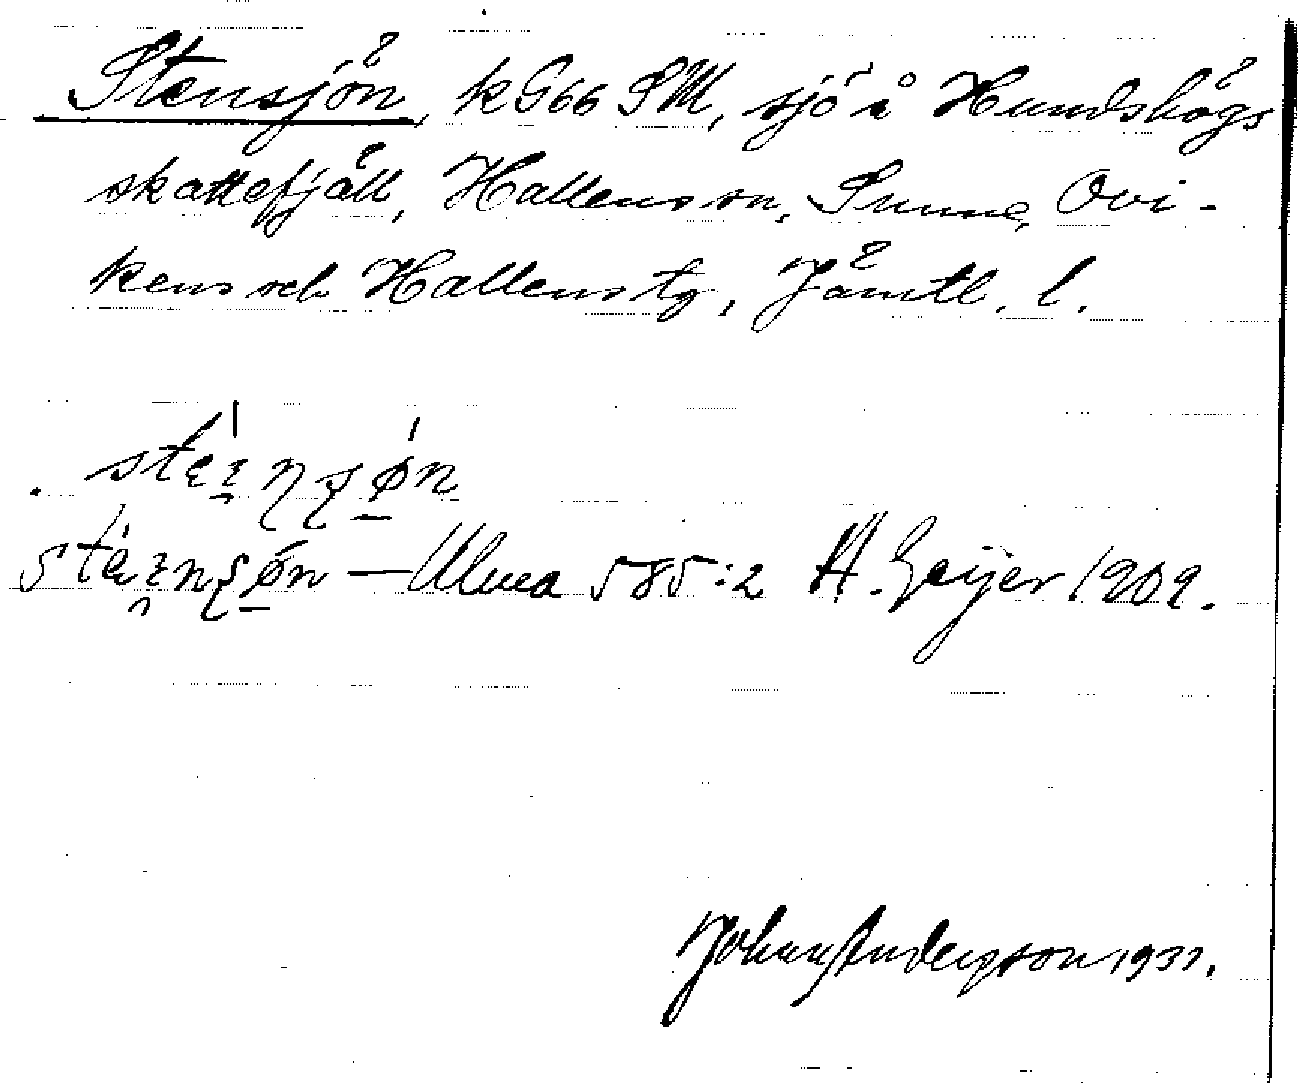 Stensjön, k G66 SM, sjö å Hundshögs
skattefjäll, Hallens sn, Sunne, Ovi-
kens och Hallens tg, Jämtl. l.
stéɪ̯ɳʂø̱n
stéɪ̯nʂø̱n — Ulma 585:2 H. Geijer 1909.
Johan Anderson 1931.